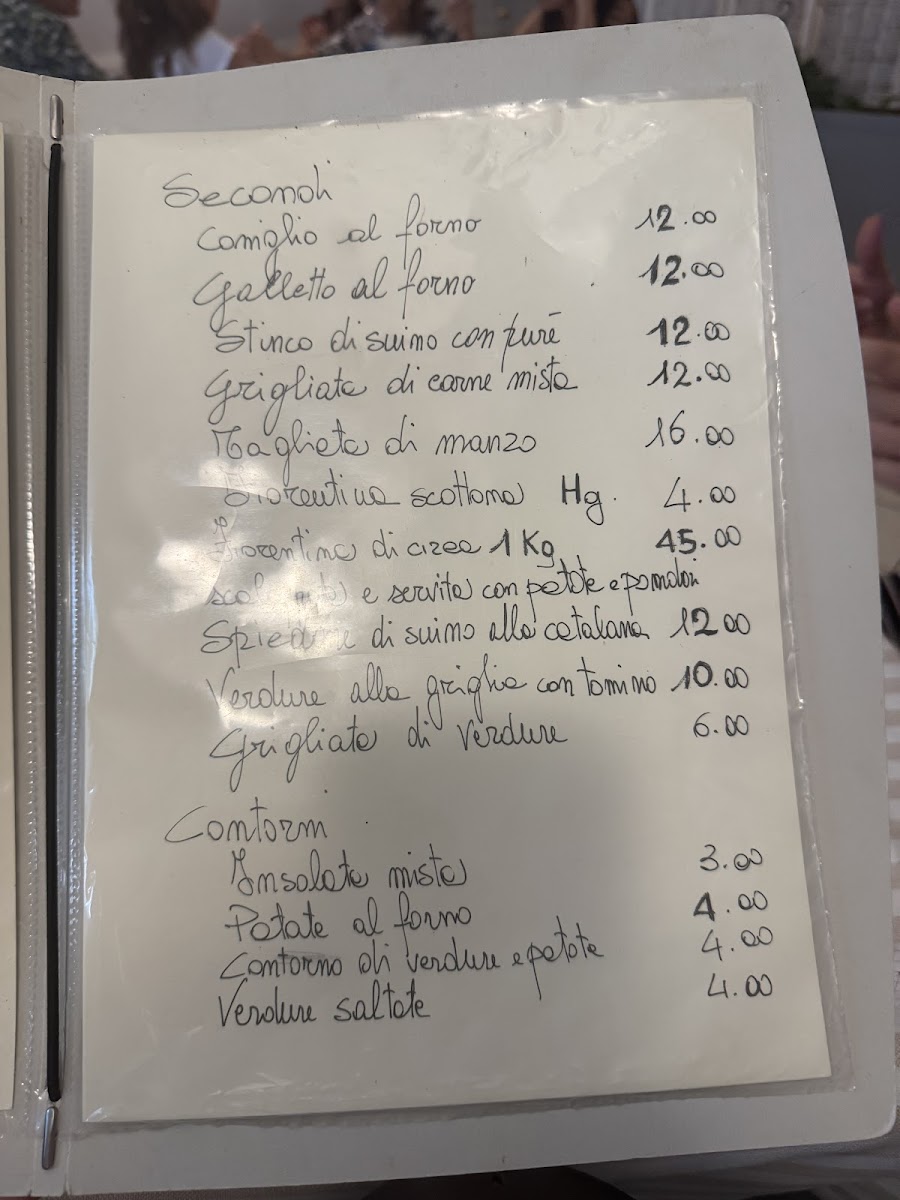 Secondi
Coniglio al forno 12.00
Galletto al forno 12.00
Stinco di suino con purè 12.00
Grigliata di carne mista 12.00
Tagliata di manzo 16.00
Fiorentina scottona Hg. 4.00
Fiorentina di circa 1 Kg 45.00
e servita con patate e pomodori
Spiedone di suino alla catalana 12.00
Verdure alla griglia con tomino 10.00
Grigliata di verdure 6.00
Contorni
Insalata mista 3.00
Patate al forno 4.00
Contorno di verdure e patate 4.00
Verdure saltate 4.00